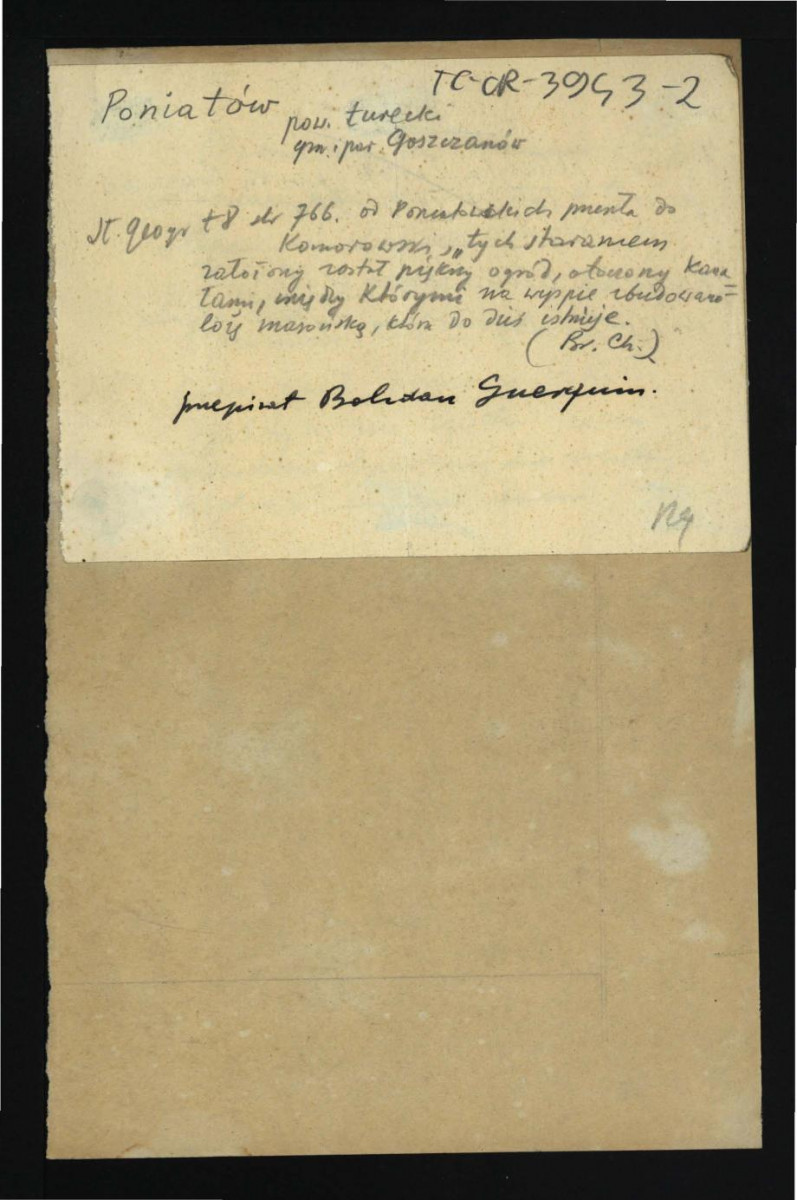 TC-CR-3943-2
Poniatów
pow. turecki
gm. i par. Goszczanów
Sł. geogr t 8 str 766. od Poniatowskich przeszła do
Komorowskich, „tych staraniem
założony został piękny ogród, otoczony kana=
łami, między którymi na wyspie zbudowano=
lożę masońską, która do dziś istnieje.
(Br. Ch.)
przepisał Bohdan Guerquin.